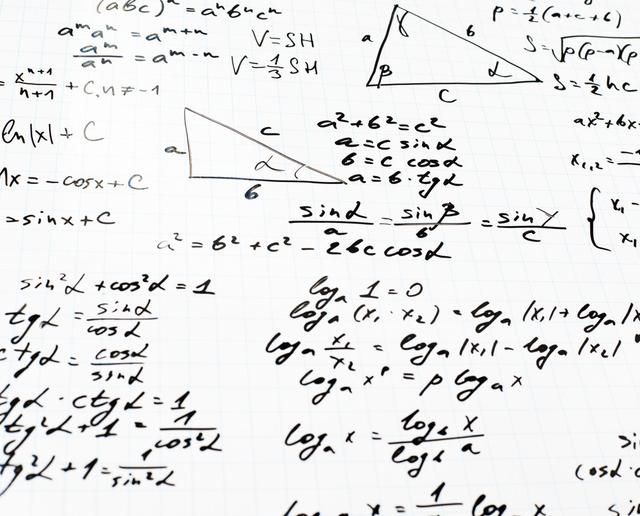 (abc)ⁿ = aⁿbⁿcⁿ
aᵐaⁿ = aᵐ⁺ⁿ
aᵐ/aⁿ = aᵐ⁻ⁿ
= xⁿ⁺¹/n+1 + C, n ≠ -1
ln|x| + C
= -cosx + C
= sinx + C
V = SH
V = 1/3 SH
a γ б
β α
c
p = 1/2 (a+c+б)
S = √p(p-a)(p
S = 1/2 hc
ax² + бx
x₁,₂ =
{ x₁
x₁
a c
α
б
a² + б² = c²
a = c sinα
б = c cosα
a = б · tgα
sinα/a = sinβ/б = sinγ/c
a² = б² + c² - 2бc cosα
sin²α + cos²α = 1
tgα = sinα/cosα
ctgα = cosα/sinα
tgα · ctgα = 1
tg²α + 1 = 1/cos²α
tg²α + 1 = 1/sin²α
logₐ 1 = 0
logₐ (x₁ · x₂) = logₐ |x₁| + logₐ |x
logₐ x₁/x₂ = logₐ |x₁| - logₐ |x₂|
logₐ xᵖ = p logₐ x
logₐ x = log_б x/log_б a
x = 1/ log x
(cosα ·